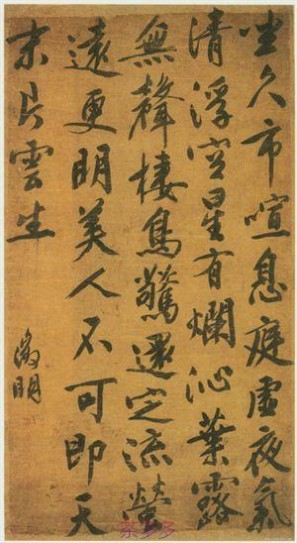 坐久市喧息庭虛夜氣
清浮空星有爛沁葉露
無聲棲鳥驚還定流螢
遠更明美人不可即天
末片雲生
徵明
茶多多